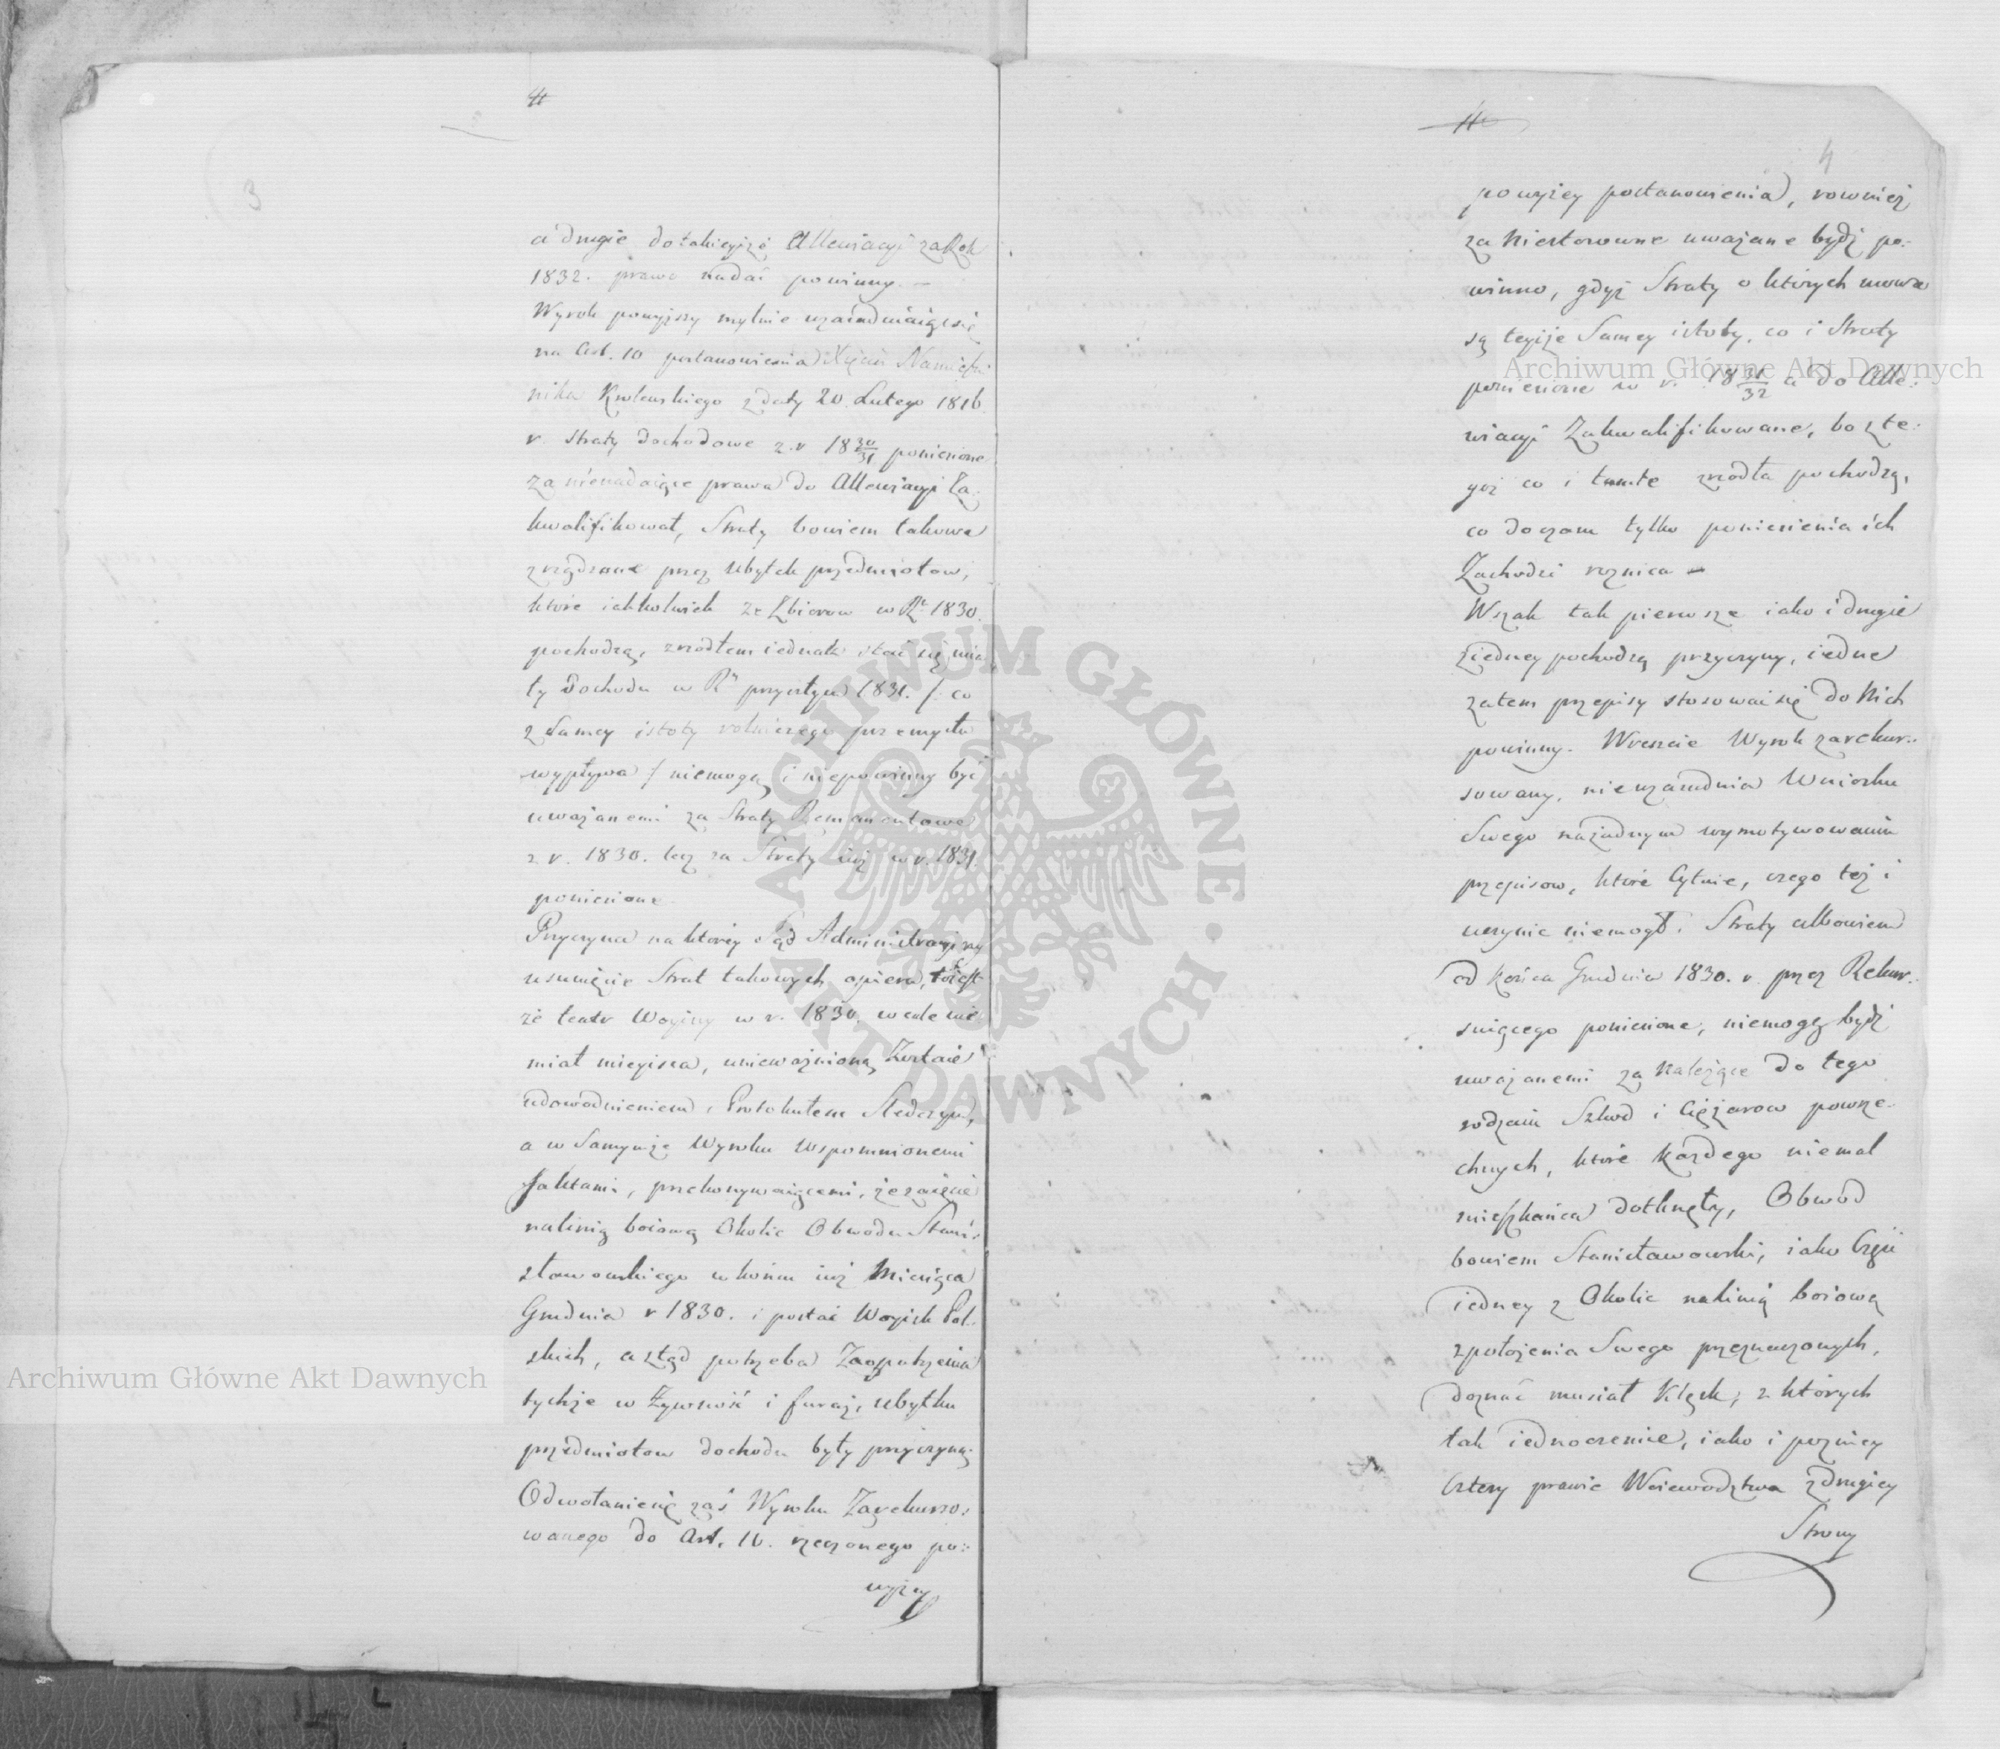 3
a drugie do takieyże Allewiacyi za Rok
1832. prawo nadać powinny. —
Wyrok powyższy mylnie uzasadniaiąc się
na Art. 10 postanowienia Xięcia Namiest
nika Krolewskiego z daty 20. Lutego 1816
r. Straty dochodowe z r 18 30/31 poniesione
za nienadaiące prawa do Allewiacyi Za-
kwalifikował, Straty bowiem takowe
zrządzone przez ubytek przedmiotow,
ktore iakkolwiek ze Zbiorow w Ru 1830.
pochodzą, zrzodłem iednak stać się mia
ły Dochodu w Ru przyszłym 1831. /: co
z Samey istoty rolniczego przemysłu
wypływa :/ niemogą i niepowinny być
uważanemi za Straty Remanentowe
z r. 1830. lecz za Straty iuż w r. 1831.
poniesione.
Przyczyna na ktorey Sąd Administracyiny
usunięcie Strat takowych opiera, to iest
że teatr Woyny w r. 1830. wcale nie
miał mieysca, unieważnioną Zostaie
udowodnieniem, Protokułem Śledczym,
a w Samymże Wyroku wspomnionemi
faktami, przekonywaiącemi, że zaięcie
na linią boiową Okolic Obwodu Stani-
sławowskiego w końcu iuż Miesiąca
Grudnia r 1830. i postać Woysk Pol-
skich, a ztąd potrzeba Zaopatrzenia
tychże w Żywność i furaż, ubytku
przedmiotow dochodu były przyczyną.
Odwołanie się zaś Wyroku Zarekurso-
wanego do Art. 10. rzeczonego po-
wyżey
4
powyżey postanowienia, rownież
za niestosowne uważane bydź po-
winno, gdyż Straty o których mowa
są teyże Samey istoty, co i Straty
poniesione w r. 18 31/32 a do Alle-
wiacyi Zakwalifikowane, bo z te-
goż co i tamte zrzodła pochodzą,
co do czasu tylko poniesienia ich
Zachodzi roznica —
Wszak tak pierwsze iako i drugie
z iedney pochodzą przyczyny, iedne
zatem przepisy stosować się do Nich
powinny. Wreszcie Wyrok zarekur-
sowany, nieuzasadnia Wniosku
Swego na żadnym wymotywowaniu
przepisow, ktore Cytuie, czego też i
uczynic niemogł. Straty albowiem
od końca Grudnia 1830. r. przez Rekur-
suiącego poniesione, niemogą bydź
uważanemi za należące do tego
rodzaiu Szkod i Ciężarow powsze-
chnych, które każdego niemal
mieszkańca dotknęły, Obwod
bowiem Stanisławowski, iako Część
iedney z Okolic na linią boiową
z położenia Swego przeznaczonych,
doznać musiał Klęsk, z których
tak iednocześnie, iako i pozniey
Cztery prawie Woiewodztwa z drugiey
Strony
Archiwum Główne Akt Dawnych
Archiwum Główne Akt Dawnych
ARCHIWUM GŁÓWNE · AKT DAWNYCH